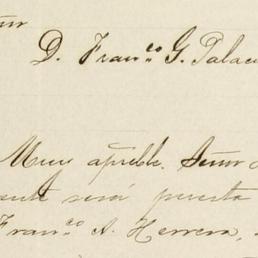 D. Fran.co G. Palac
Muy apreble. Señor
será puesta
Fran.co A. Herrera,